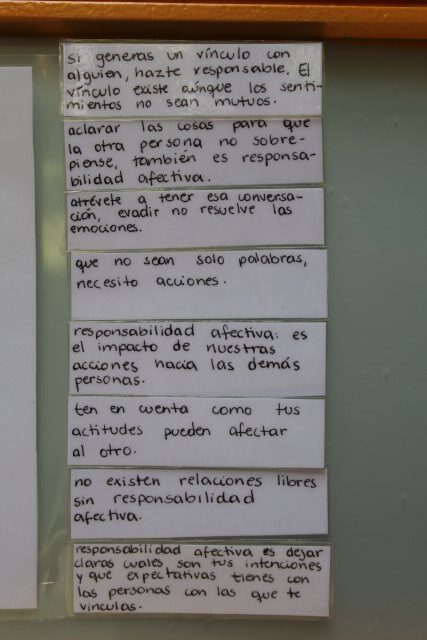 si generas un vínculo con
alguien, hazte responsable. El
vínculo existe aunque los senti-
mientos no sean mutuos.
aclarar las cosas para que
la otra persona no sobre-
piense, también es responsa-
bilidad afectiva.
atrévete a tener esa conversa-
ción, evadir no resuelve las
emociones.
que no sean solo palabras,
necesito acciones.
responsabilidad afectiva: es
el impacto de nuestras
acciones hacia las demás
personas.
ten en cuenta como tus
actitudes pueden afectar
al otro.
no existen relaciones libres
sin responsabilidad
afectiva.
responsabilidad afectiva es dejar
claras cuales son tus intenciones
y que expectativas tienes con
las personas con las que te
vinculas.